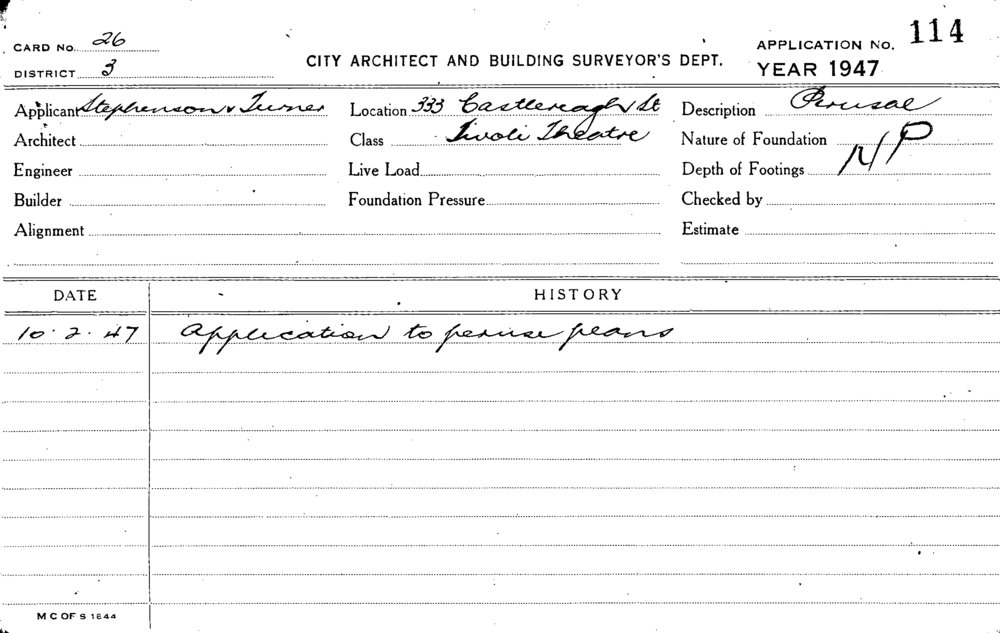 CARD No. 26
DISTRICT 3
CITY ARCHITECT AND BUILDING SURVEYOR'S DEPT.
APPLICATION No. 114
YEAR 1947
Applicant Stephenson & Turner
Location 333 Castlereagh St
Description Perusal
Architect
Class Tivoli Theatre
Nature of Foundation
Engineer
Live Load
Depth of Footings
NP
Builder
Foundation Pressure
Checked by
Alignment
Estimate
DATE
HISTORY
10.2.47 Application to peruse plans
M C OF S 1844